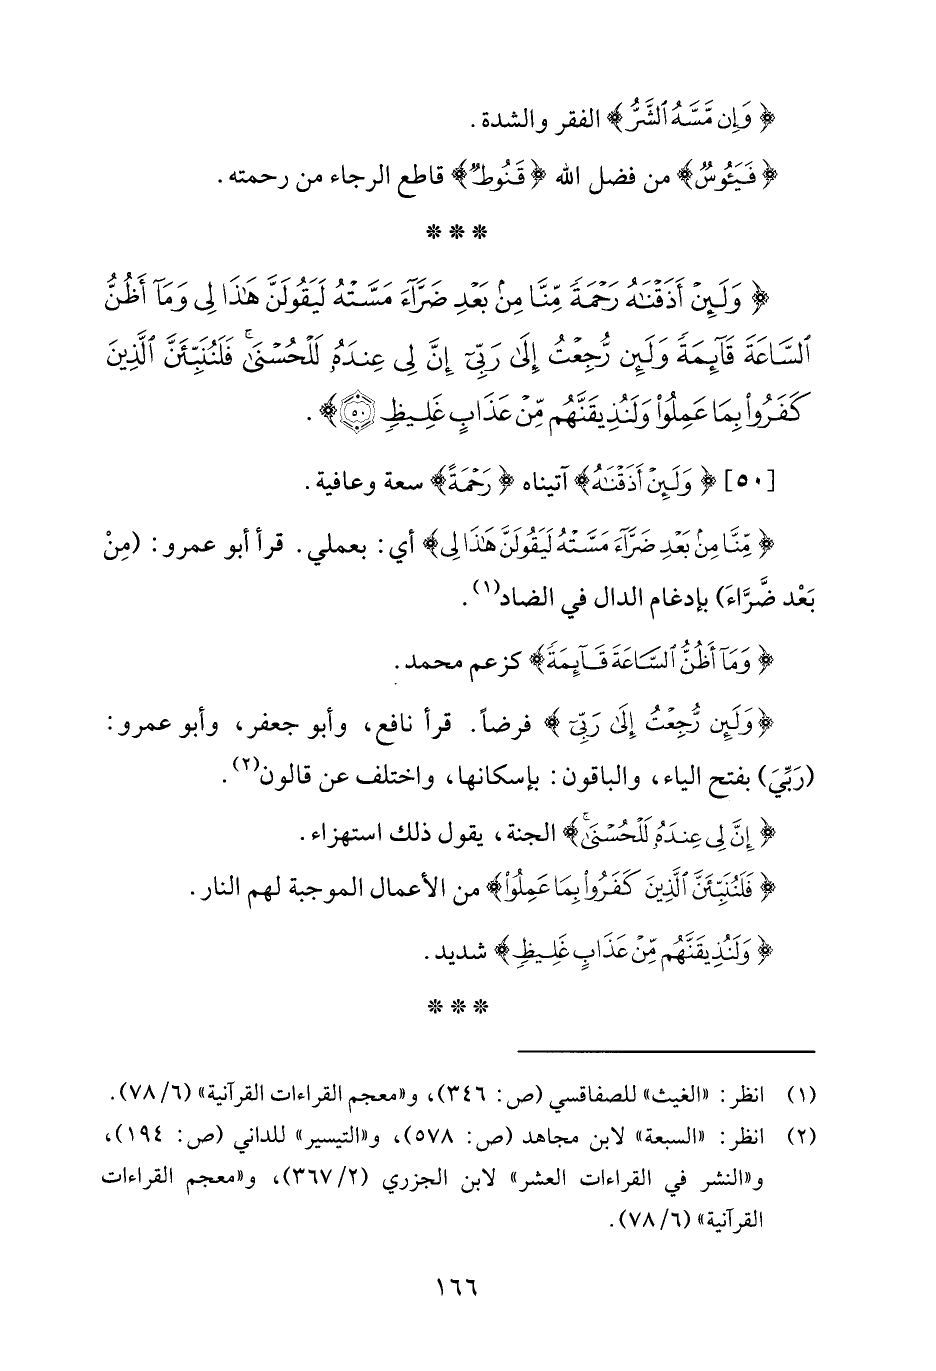 ﴿ وَإِن مَّسَّهُ ٱلشَّرُّ ﴾ الفقر والشدة .
﴿ فَيَـُٔوسٌ ﴾ من فضل الله ﴿ قَنُوطٌ ﴾ قاطع الرجاء من رحمته .
* * *
﴿ وَلَئِنْ أَذَقْنَٰهُ رَحْمَةً مِّنَّا مِنۢ بَعْدِ ضَرَّآءَ مَسَّتْهُ لَيَقُولَنَّ هَٰذَا لِى وَمَآ أَظُنُّ
ٱلسَّاعَةَ قَآئِمَةً وَلَئِن رُّجِعْتُ إِلَىٰ رَبِّىٓ إِنَّ لِى عِندَهُۥ لَلْحُسْنَىٰ ۚ فَلَنُنَبِّئَنَّ ٱلَّذِينَ
كَفَرُوا۟ بِمَا عَمِلُوا۟ وَلَنُذِيقَنَّهُم مِّنْ عَذَابٍ غَلِيظٍ ٥٠ ﴾ .
[٥٠] ﴿ وَلَئِنْ أَذَقْنَٰهُ ﴾ آتيناه ﴿ رَحْمَةً ﴾ سعة وعافية .
﴿ مِّنَّا مِنۢ بَعْدِ ضَرَّآءَ مَسَّتْهُ لَيَقُولَنَّ هَٰذَا لِى ﴾ أي : بعملي . قرأ أبو عمرو : (مِنْ
بَعْد ضَّرَّاءَ) بإدغام الدال في الضاد(١) .
﴿ وَمَآ أَظُنُّ ٱلسَّاعَةَ قَآئِمَةً ﴾ كزعم محمد .
﴿ وَلَئِن رُّجِعْتُ إِلَىٰ رَبِّىٓ ﴾ فرضاً . قرأ نافع ، وأبو جعفر ، وأبو عمرو :
(رَبِّيَ) بفتح الياء ، والباقون : بإسكانها ، واختلف عن قالون(٢) .
﴿ إِنَّ لِى عِندَهُۥ لَلْحُسْنَىٰ ۚ ﴾ الجنة ، يقول ذلك استهزاء .
﴿ فَلَنُنَبِّئَنَّ ٱلَّذِينَ كَفَرُوا۟ بِمَا عَمِلُوا۟ ﴾ من الأعمال الموجبة لهم النار .
﴿ وَلَنُذِيقَنَّهُم مِّنْ عَذَابٍ غَلِيظٍ ﴾ شديد .
* * *
(١) انظر : «الغيث» للصفاقسي (ص : ٣٤٦) ، و«معجم القراءات القرآنية» (٦/ ٧٨) .
(٢) انظر : «السبعة» لابن مجاهد (ص : ٥٧٨) ، و«التيسير» للداني (ص : ١٩٤) ،
و«النشر في القراءات العشر» لابن الجزري (٢/ ٣٦٧) ، و«معجم القراءات
القرآنية» (٦/ ٧٨) .
١٦٦